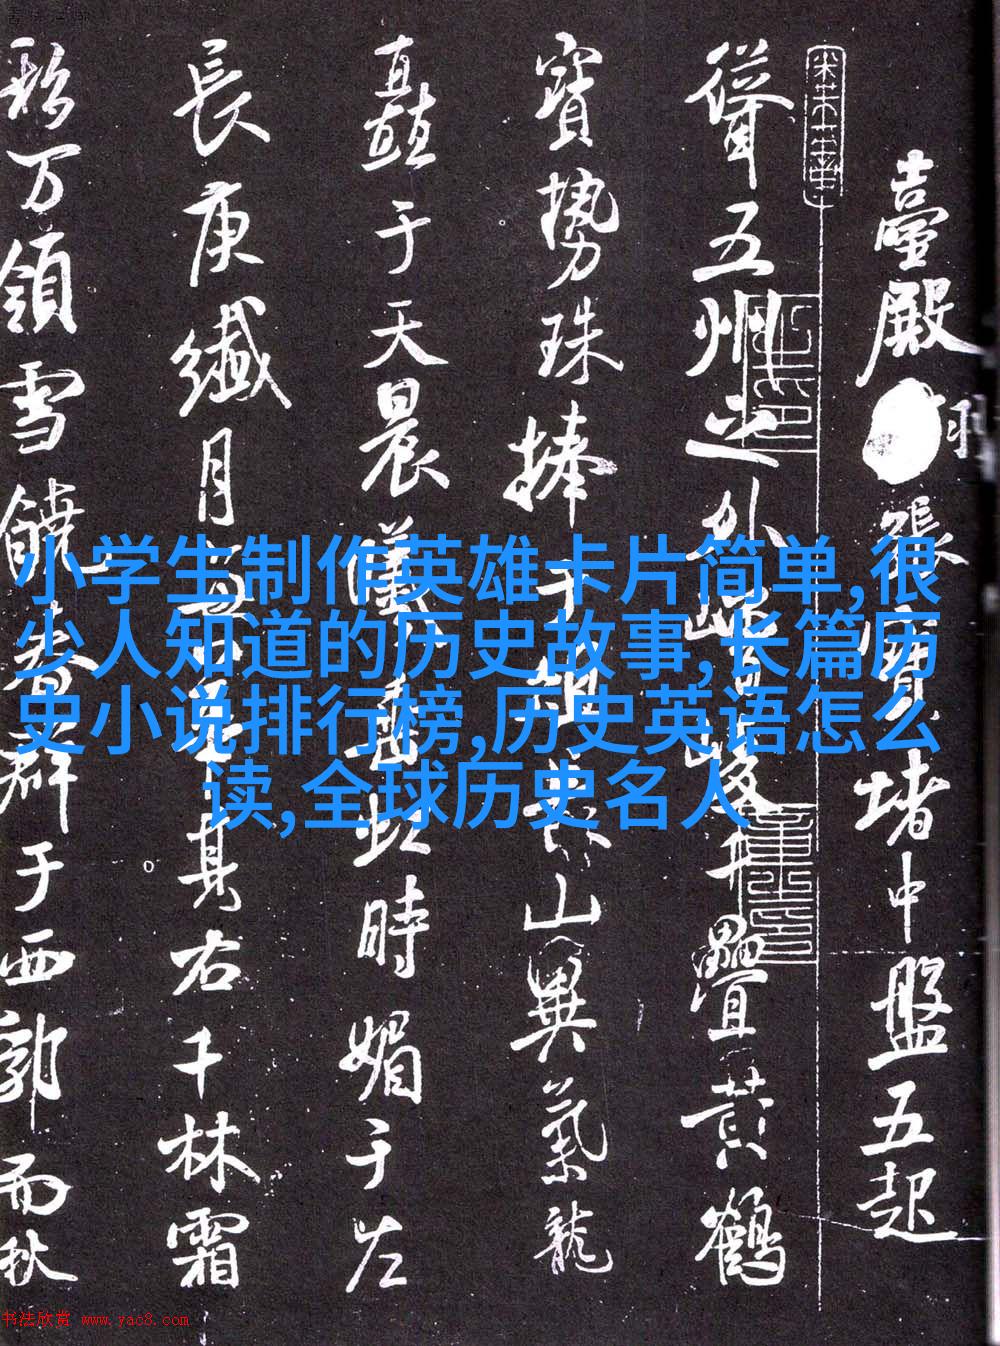 臺殿張寶堵中盤五起
聳五州之外疊黃鶴
寶勢珠捧山異氣龍
直矗于天晨儀時媚于左
長庚纖月其右千林霜
万領雪饒春群于西郭而秋
小学生制作英雄卡片简单,很
少人知道的历史故事,长篇历
史小说排行榜,历史英语怎么
读,全球历史名人
书法欣赏 www.yac8.com